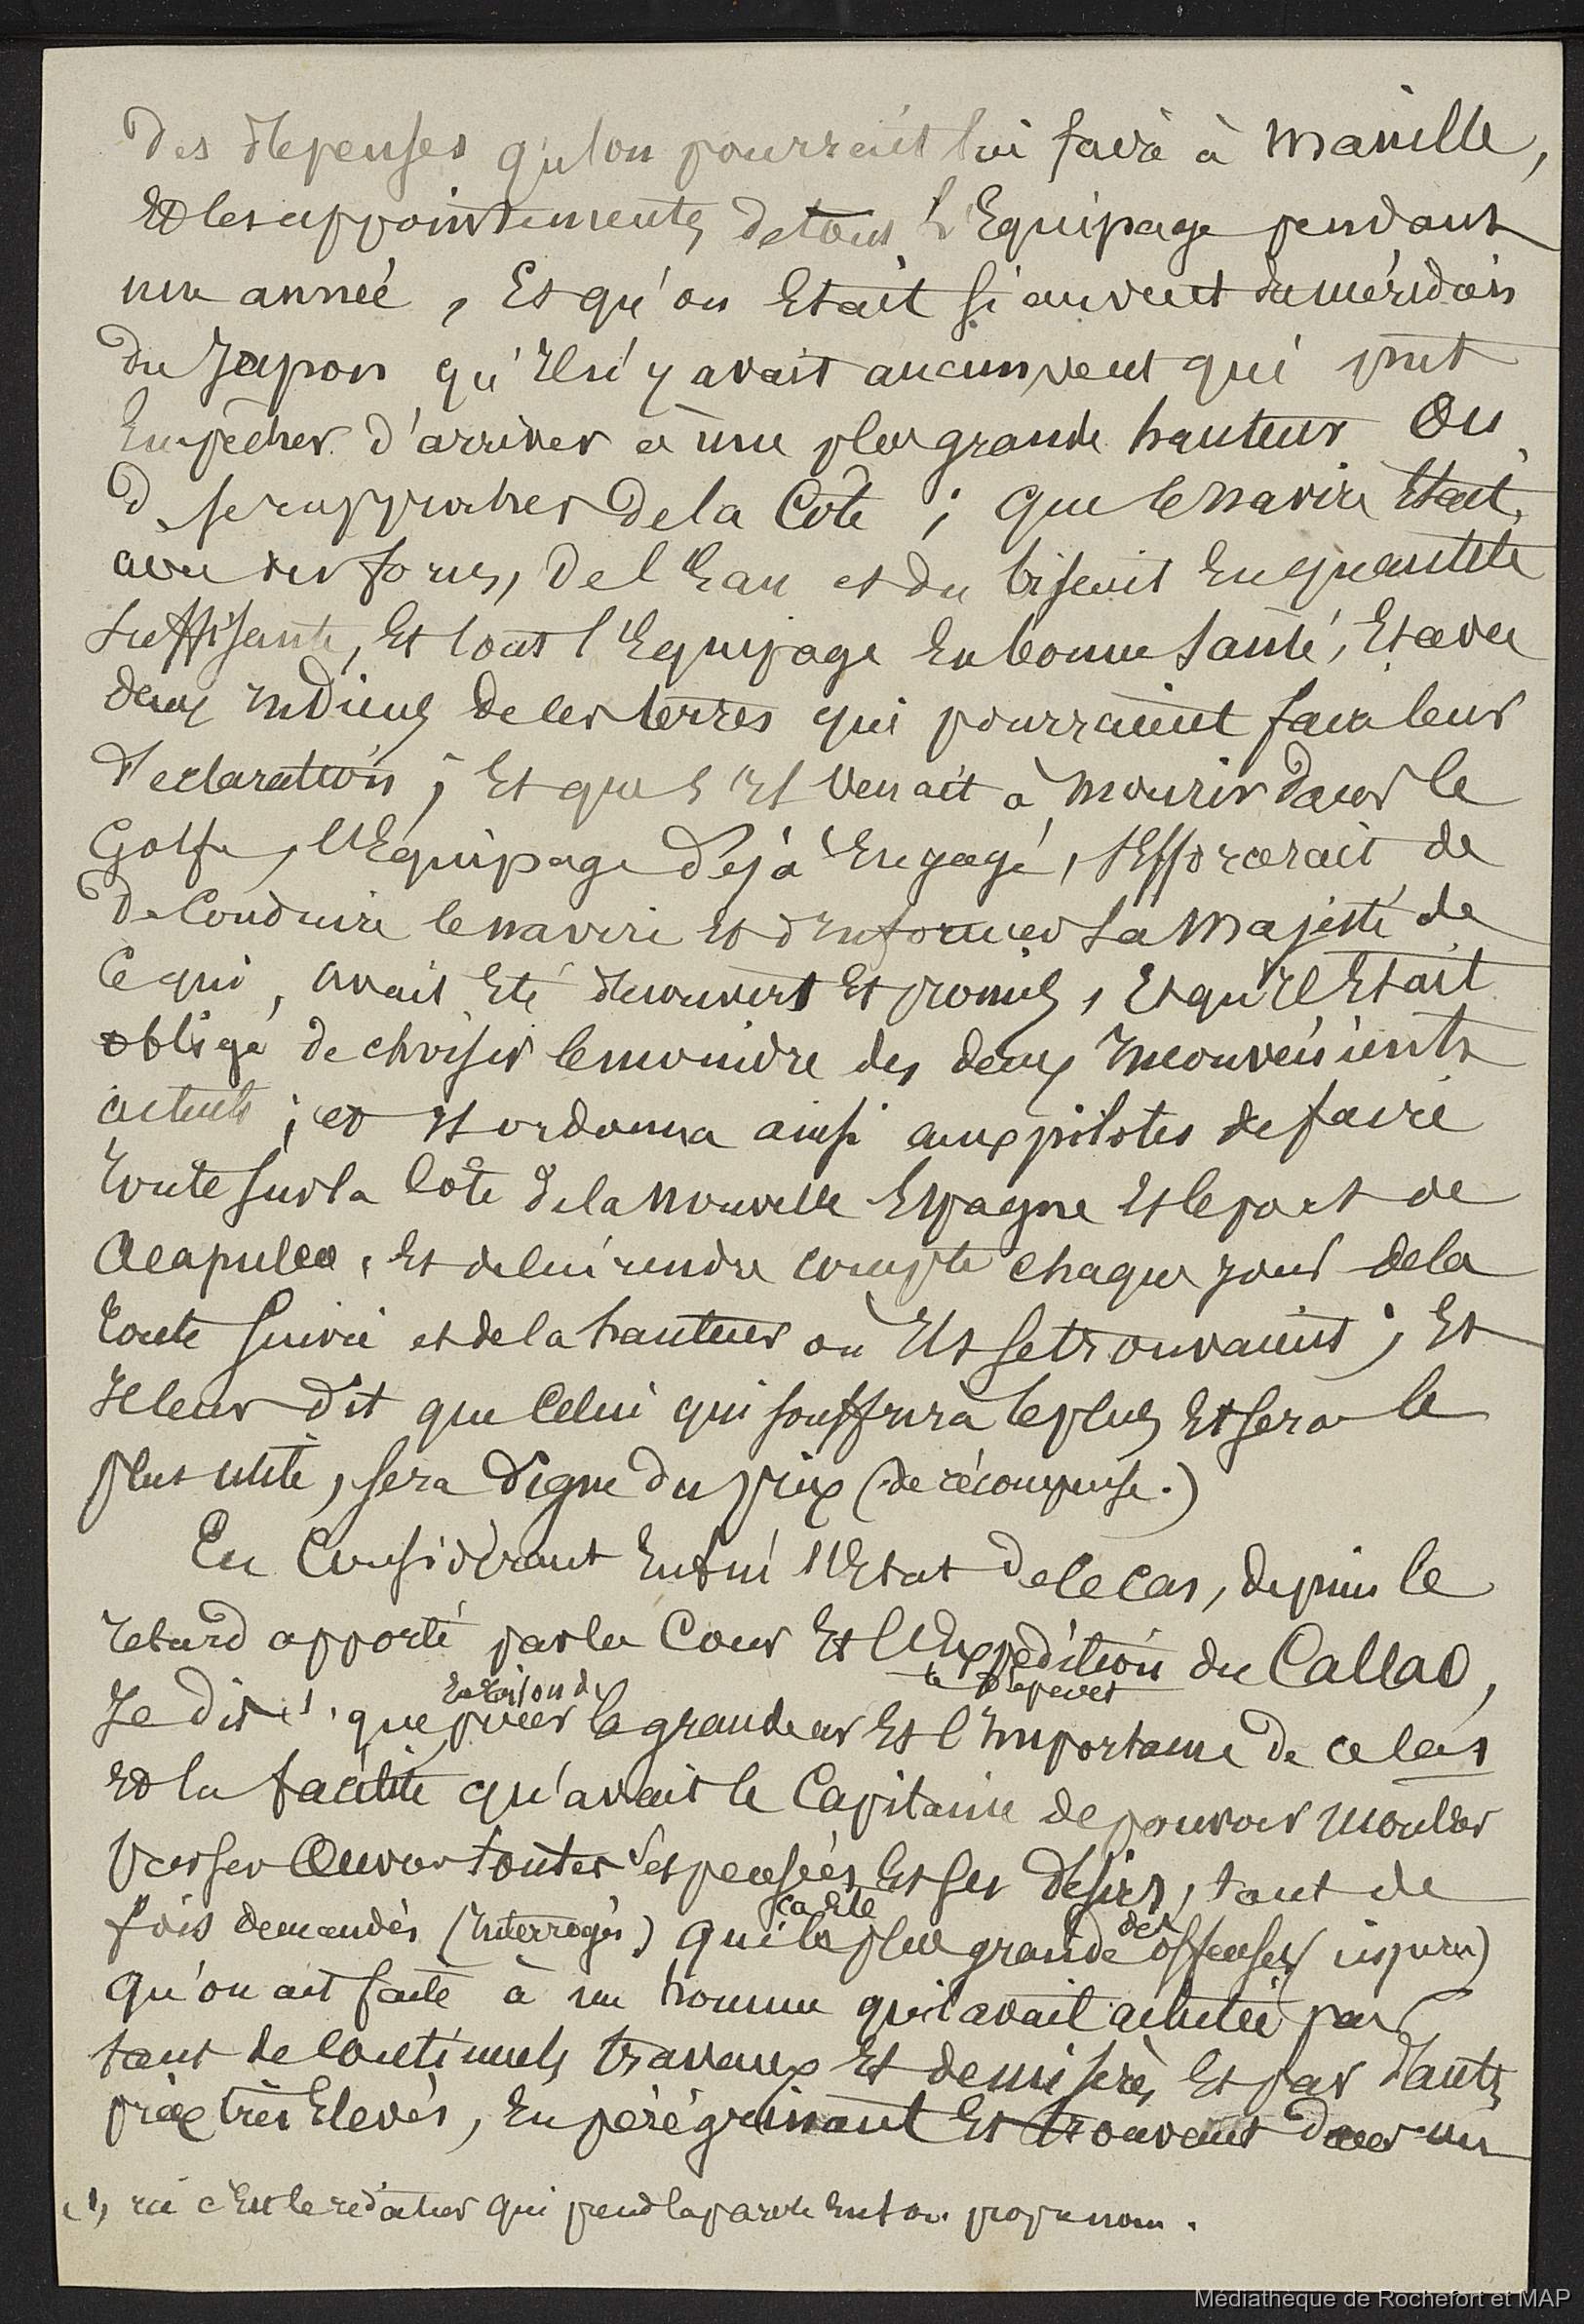 Des depenses qu'lon pourrait lui faire à Manille,
Et les appointements de tous l'Equipage pendant
une année, Et qu'on Etait si au vent du méridien
du Japon qu'Il n'y avait aucun vent qui put
Empêcher d'arriver à une plus grande hauteur Ou
D. se rapprocher de la Côte ; que le navire Etait
avec des forces, de l'Eau et du biscuit En quantité
suffisante, Et tout l'Equipage En bonne santé, Et avec
deux Indiens de ces terres qui pourraient faire leur
déclaration ; Et que s'Il venait à mourir dans le
Golfe, l'Equipage déjà Engagé, s'Efforcerait de
De Conduire le navire Et d'Informer Sa Majesté de
Ce qui, avait Eté découvert Et promis, Et qu'Il Etait
obligé de choisir le moindre des deux Inconvénients
actuels ; et Il ordonna ainsi aux pilotes de faire
route sur la Côte de la nouvelle Espagne Et le port de
Acapulco, Et de lui rendre compte chaque jour de la
route suivie et de la hauteur où Ils se trouvaient ; Et
Il leur dit que Celui qui souffrira le plus Et sera le
plus utile, sera Digne du prix (de récompense.)
En Considérant Enfin l'Etat de ce cas, depuis le
retard apporté par la Cour Et l'Expédition du Callao,
le Deperet
En raison de
Je dis (1. que pour la grandeur Et l'Importance de ce cas
Et la facilité qu'avait le Capitaine de pouvoir montrer
verser Ouvrir toutes ses pensées Et ses désirs, tant de
Ca Eté
fois demandés (Interrogés) que la plus grande des offenses (injures)
qu'on ait faite à un homme qui l'avait achetée par
tant de Continuels travaux Et de misères, Et par d'auts
prix très Elevés, En pérégrinant Et trouvant dans un
(1, ici c'Est le rédacteur qui prend la parole En son propre nom.
Médiathèque de Rochefort et MAP